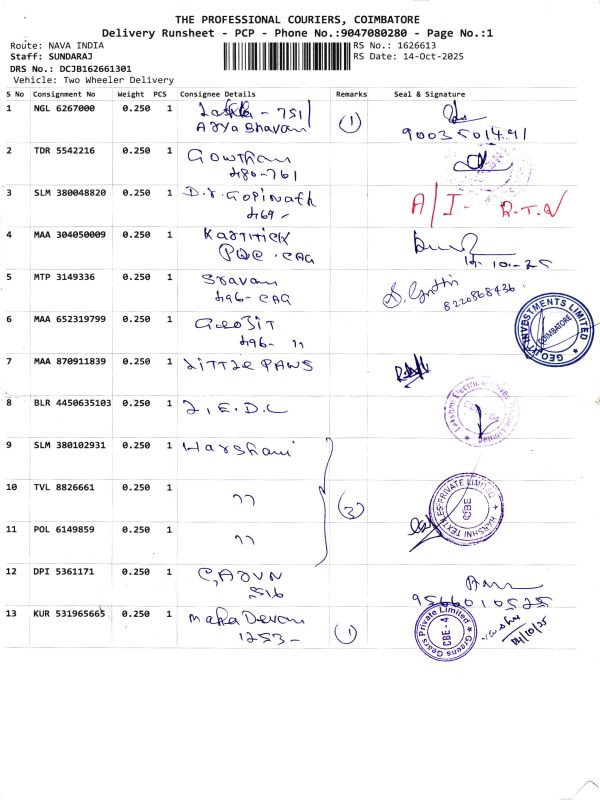 THE PROFESSIONAL COURIERS, COIMBATORE
Delivery Runsheet - PCP - Phone No.:9047080280 - Page No.:1
Route: NAVA INDIA
Staff: SUNDARAJ
DRS No.: DCJB162661301
Vehicle: Two Wheeler Delivery
RS No.: 1626613
RS Date: 14-Oct-2025
S No Consignment No Weight PCS Consignee Details Remarks Seal & Signature
1 NGL 6267000 0.250 1 - 751/ (1)
Arya Bhavan
2 TDR 5542216 0.250 1 Gowtham
480-761
3 SLM 380048820 0.250 1 D.r. Gopinath A/I- R.T.O
469-
4 MAA 304050009 0.250 1 Karthick
CAG
5 MTP 3149336 0.250 1 Sravan
496-CAG 8220868436
6 MAA 652319799 0.250 1 Geojit GEOJIT INVESTMENTS LIMITED COIMBATORE
496- 11
7 MAA 870911839 0.250 1 Little Paws
8 BLR 4450635103 0.250 1 L.E.D.C
9 SLM 380102931 0.250 1 Harshani
10 TVL 8826661 0.250 1 " (3) HARSHNI TEXTILES PRIVATE LIMITED CBE
11 POL 6149859 0.250 1 "
12 DPI 5361171 0.250 1
516 9566010525
13 KUR 531965665 0.250 1 MahaDevan Greens Gears Private Limited CBE - 4 14/10/25
1253- (1)